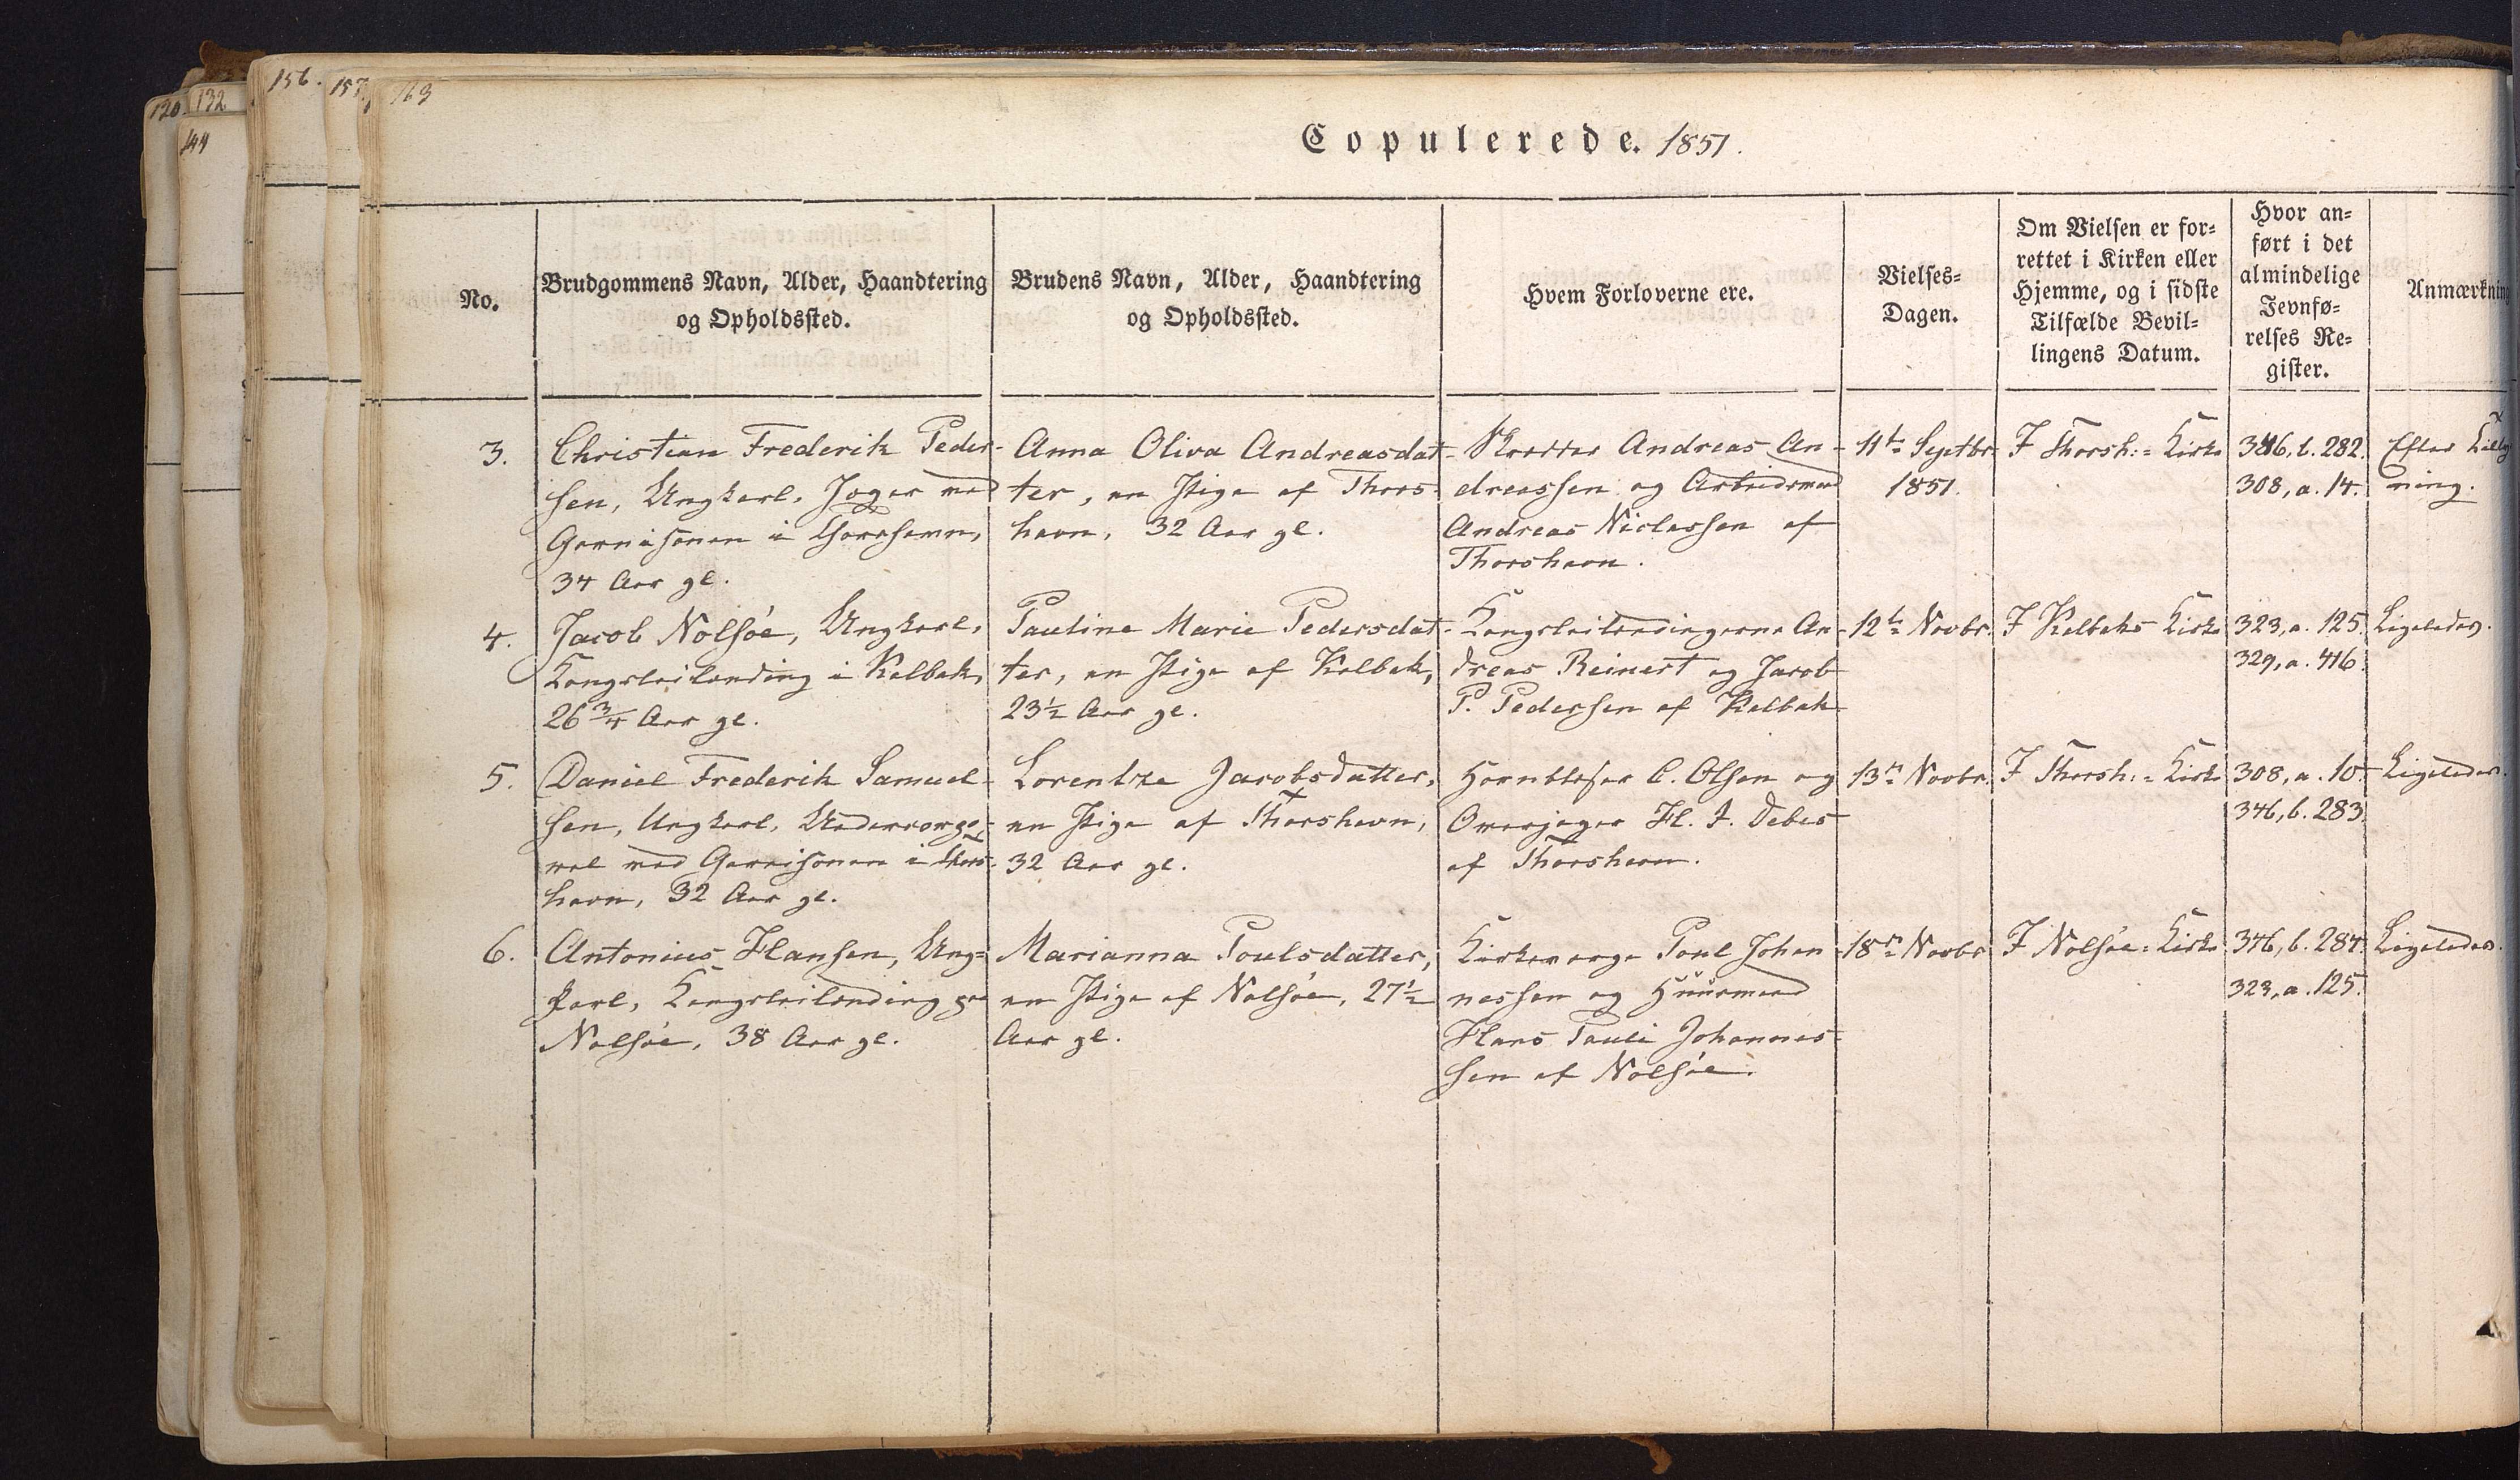 156.
157.
163
120.
132
144
Copulerede. 1851.
No.
Brudgommens Navn, Alder, Haandtering
og Opholdssted.
Brudens Navn, Alder, Haandtering
og Opholdssted.
Hvem Forloverne ere.
Vielses-
Dagen.
Om Vielsen er for-
rettet i Kirken eller
Hjemme, og i sidste
Tilfælde Bevil-
lingens Datum.
Hvor an-
ført i det
almindelige
Jevnfø-
relses Re-
gister.
Anmærkning
3.
Christian Frederik Peder-
sen, Ungkarl, Jæger ved
Garnisonen i Thorshavn,
34 Aar gl.
Anna Oliva Andreasdat-
ter, en Pige af Thors-
havn, 32 Aar gl.
Andreas An-
dreassen og Arbeidsmand
Andreas Niclassen af
Thorshavn.
11te Septbr.
1851.
I Thorsh:= Kirke
346, b. 282.
308, a. 14.
Efter
ning.
4.
Jacob Nolsøe, Ungkarl,
Kongsleilænding i Kalbak,
26 3/4 Aar gl.
Pauline Marie Pedersdat-
ter, en Pige af Kalbak,
23 1/2 Aar gl.
Kongsleilændingerne An-
dreas Reinert og Jacob
P. Pedersen af Kalbak.
12te Novbr.
I Kalbaks Kirke
323, a. 125.
329, a. 416.
Ligeledes.
5.
Daniel Frederik Samuel-
sen, Ungkarl, Undercorpo-
ral ved Garnisonen i Thors-
havn, 32 Aar gl.
Lorentze Jacobsdatter,
en Pige af Thorshavn,
32 Aar gl.
Hornblæser C. Olsen og
Overjæger H. J. Debes
af Thorshavn.
13de Novbr.
I Thorsh:= Kirke
308, a. 10.
346, b. 283.
Ligeledes.
6.
Antonius Hansen, Ung=
karl, Kongsleilænding paa
Nolsøe, 38 Aar gl.
Marianna Poulsdatter,
en Pige af Nolsøe, 27 1/2
Aar gl.
Kirkeværge Poul Johan-
nessen og Huusmand
Hans Pauli Johannes-
sen af Nolsøe.
18de Novbr.
I Nolsøe= Kirke
346, b. 284.
323, a. 125.
Ligeledes.